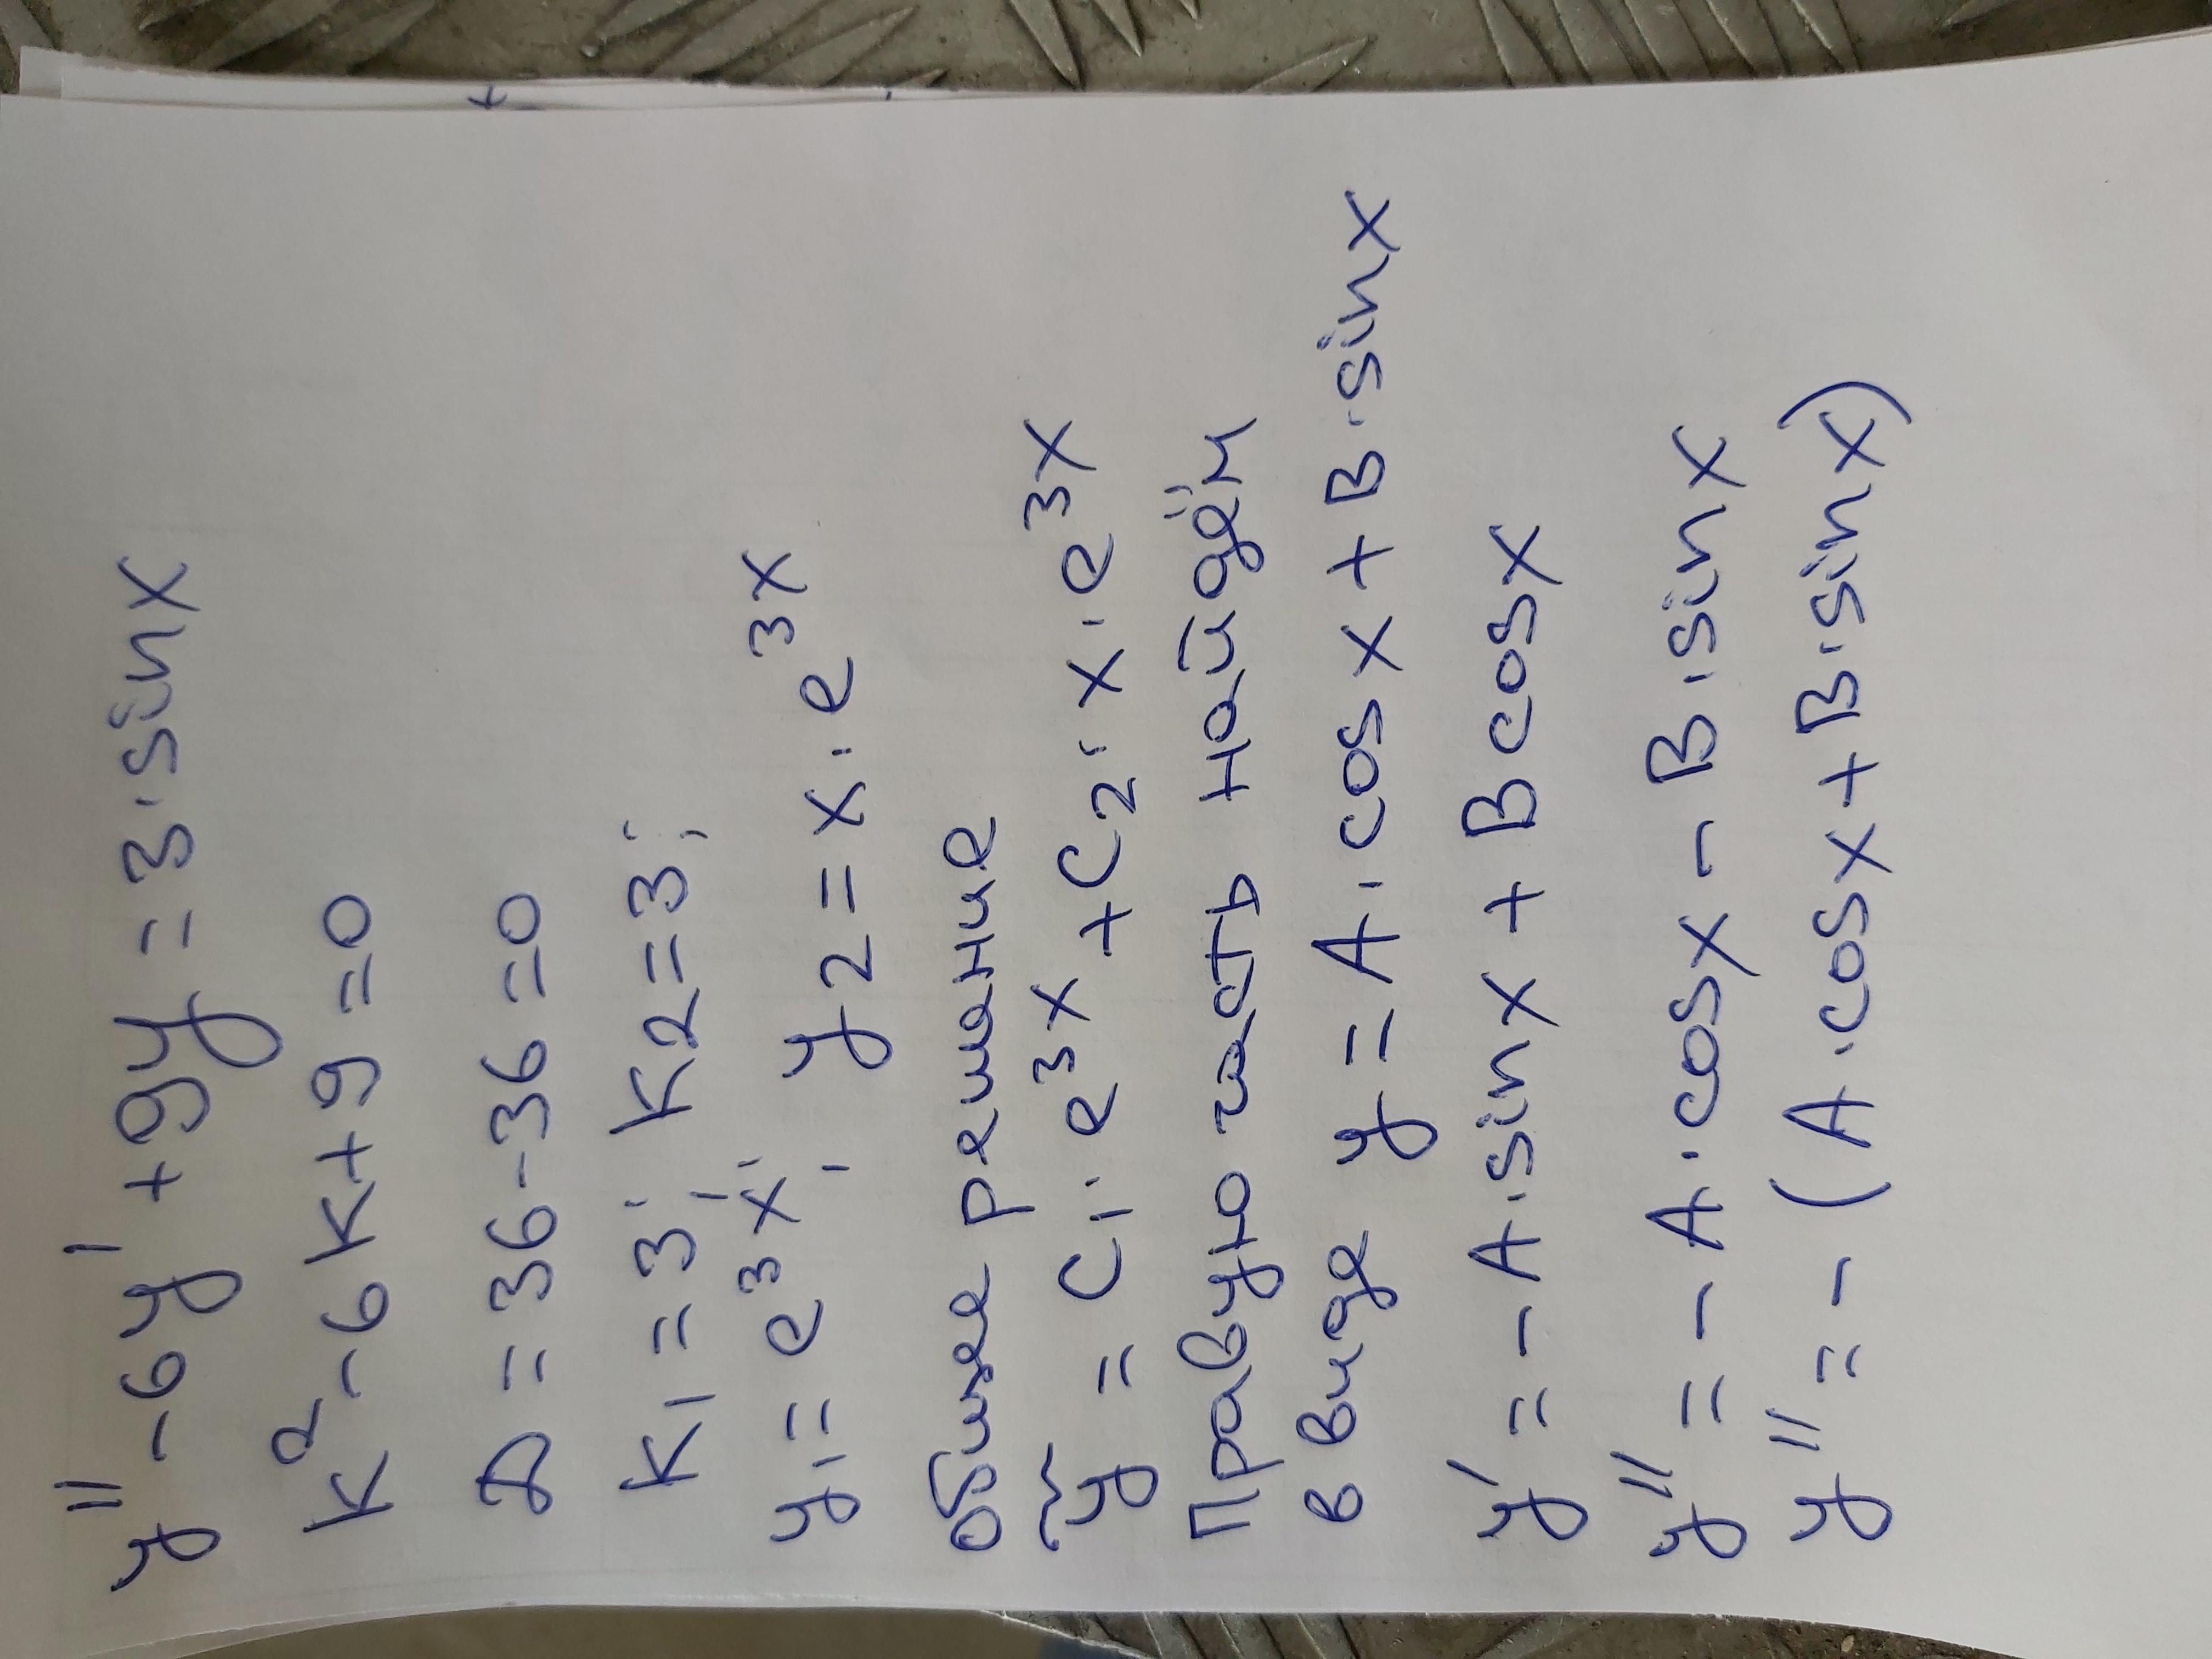 y" - 6y' + 9y = 3·sinx
k² - 6k + 9 = 0
D = 36 - 36 = 0
k1 = 3; k2 = 3;
y1 = e^3x; y2 = x·e^3x
общее решение
ỹ = C1·e^3x + C2·x·e^3x
Правую часть найдём
в виде y = A·cosx + B·sinx
y' = - A·sinx + B cosx
y" = - A·cosx - B·sinx
y" = - (A·cosx + B·sinx)